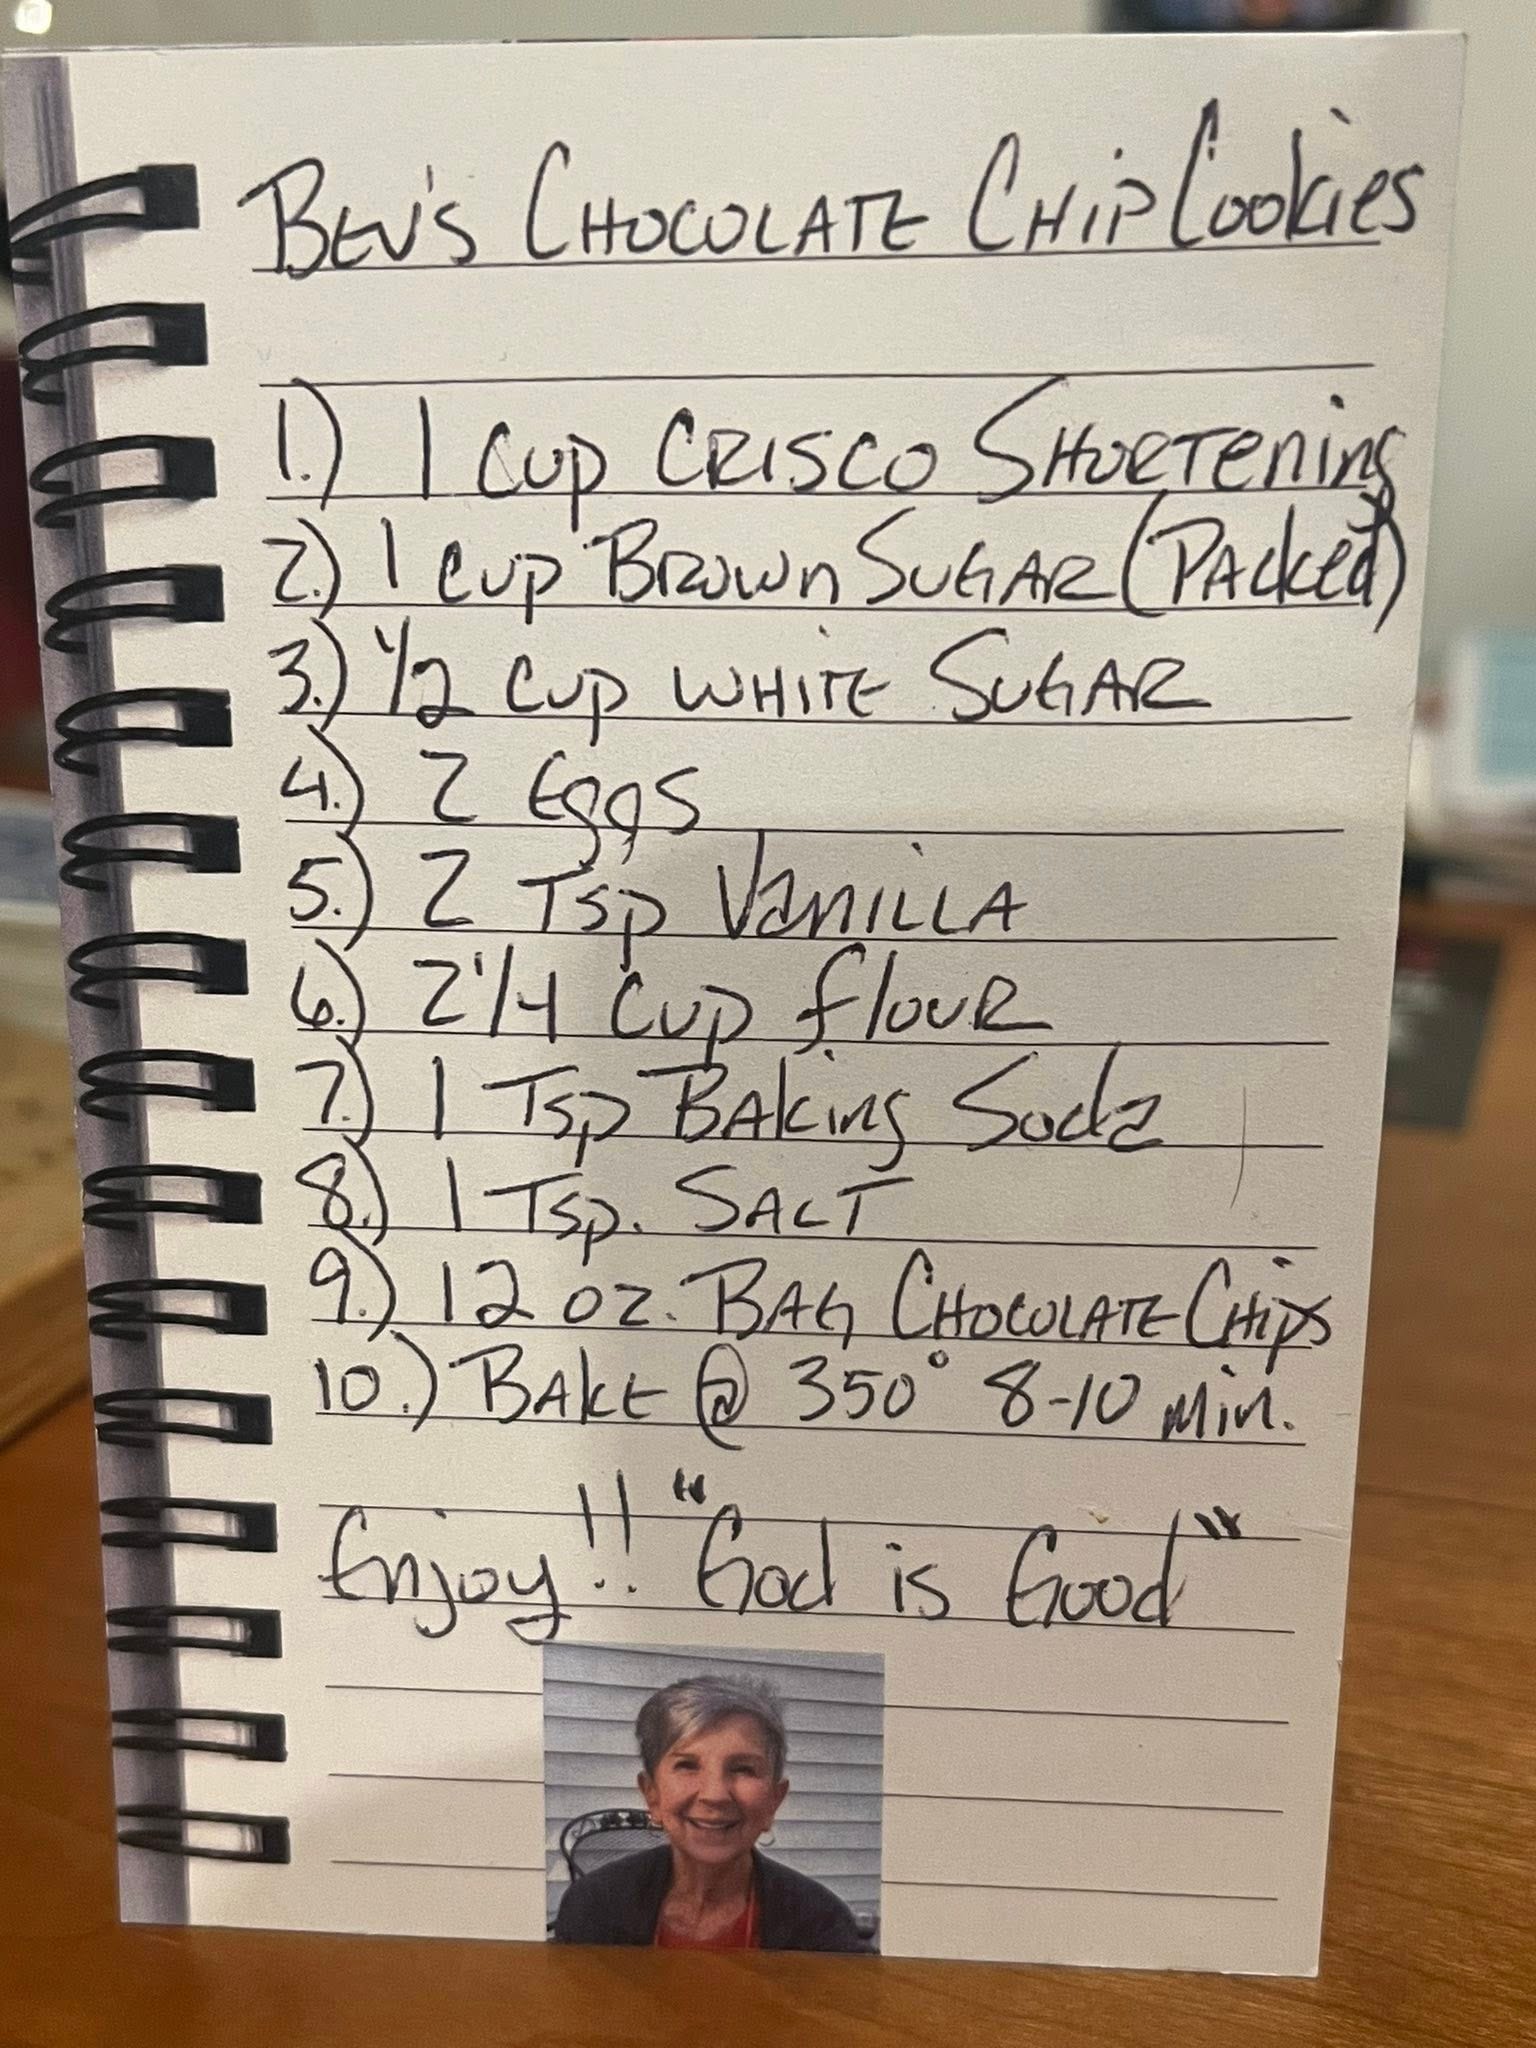 Bev's Chocolate Chip Cookies
1.) 1 Cup Crisco Shortening
2.) 1 Cup Brown Sugar (Packed)
3.) 1/2 Cup White Sugar
4.) 2 Eggs
5.) 2 Tsp Vanilla
6.) 2 1/4 Cup flour
7.) 1 Tsp Baking Soda
8.) 1 Tsp. Salt
9.) 12 oz. Bag Chocolate Chips
10.) Bake @ 350° 8-10 min.
Enjoy!! "God is Good"